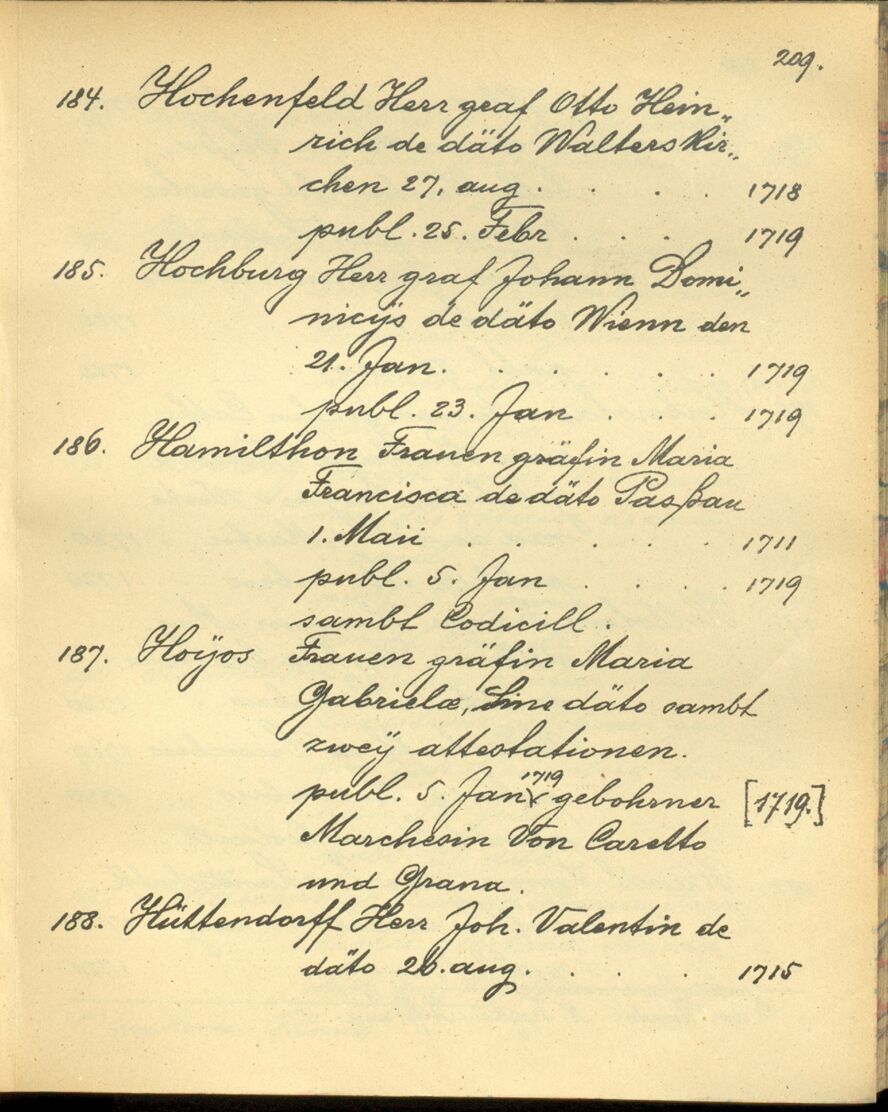 209.
184. Hochenfeld Herr graf Otto Hein„
rich de däto Walterskir„
chen 27. aug. . . . 1718
publ. 25. Febr . . . 1719
185. Hochburg Herr graf Johann Domi„
nicÿs de däto Wienn den
21. Jan. . . . . . . 1719
publ. 23. Jan . . . 1719
186. Hamilthon Frauen gräfin Maria
Francisca de däto Pasßau
1. Maii . . . . . . 1711
publ. 5. Jan . . . . 1719
sambt Codicill.
187. Hoÿos Frauen gräfin Maria
Gabrielæ, Sine däto sambt
zweÿ attestationen.
publ. 5. Jan 1719 gebohrner [1719.]
Marchesin Von Caretto
und Grana.
188. Hüttendorff Herr Joh. Valentin de
däto 26. aug. . . . . 1715